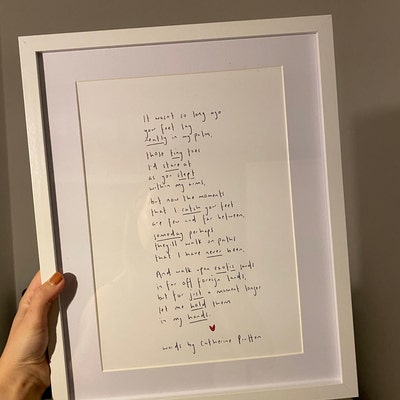 It wasn't so long ago
your feet lay
neatly in my palms,
those tiny toes
I'd stare at
as you slept
within my arms,
but now the moments
that I catch your feet
are few and far between,
someday perhaps
they'll walk on paths
that I have never been.
And walk upon exotic sands
in far off foreign lands,
but for just a moment longer
let me hold them
in my hands.
words by Catherine Prutton